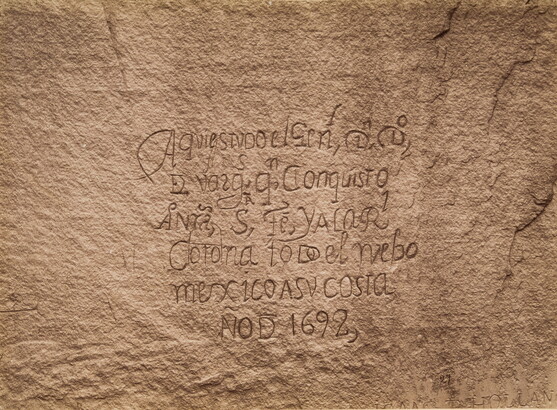 Aqui estuvo el Genl, Dn. Do,
D. Vargs, qn, Conquisto
A Nra, S, Fe, Y A LA Rl
Corona todo el nuebo
mexico A SU costa,
AÑO D 1692,